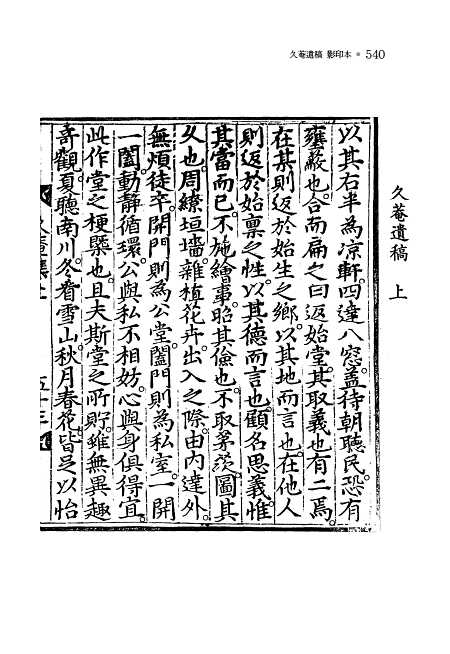 久菴遺稿 影印本 • 540
久菴遺稿 上
以其右半為凉軒。四達八窓。盖待朝聽民。恐有
壅蔽也。合而扁之曰返始堂。其取義也有二焉。
在某則返於始生之鄕。以其地而言也。在他人
則返於始稟之性。以其德而言也。顧名思義。惟
其當而已。不施繪事。昭其儉也。不取茅茨。圖其
久也。周繚垣墻。雜植花卉。出入之際。由內達外。
無煩徒卒。開門則為公堂。闔門則為私室。一開
一闔。動靜循環。公與私不相妨。心與身俱得宜。
此作堂之梗槩也。且夫斯堂之所貯。雖無異趣
奇觀。夏聽南川。冬看雪山。秋月春花。皆足以怡
五十三